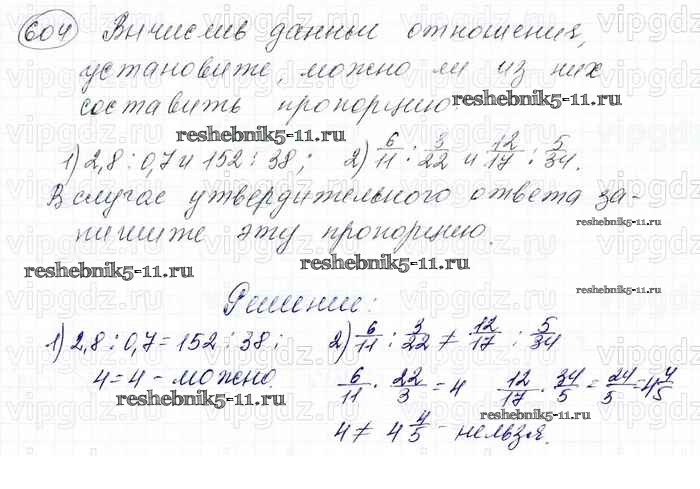 604 Вычислив данные отношения,
установите, можно ли из них
составить пропорцию. reshebnik5-11.ru
reshebnik5-11.ru
1) 2,8 : 0,7 и 152 : 38; 2) 6/11 : 3/22 и 12/17 : 5/34.
В случае утвердительного ответа за-
пишите эту пропорцию. reshebnik5-11.ru
reshebnik5-11.ru reshebnik5-11.ru
Решение:
1) 2,8 : 0,7 = 152 : 38; 2) 6/11 : 3/22 ≠ 12/17 : 5/34
4 = 4 - можно. 6/11 · 22/3 = 4 12/17 · 34/5 = 24/5 = 4 4/5
reshebnik5-11.ru reshebnik5-11.ru
4 ≠ 4 4/5 - нельзя.